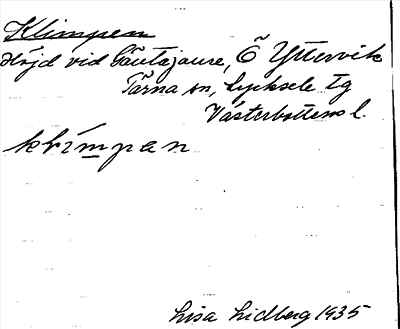 Klimpen
Höjd vid Gäutajaure, Ö Yttervik
Tärna sn, Lycksele tg
Västerbottens l.
klimpan
Lisa Lidberg 1935